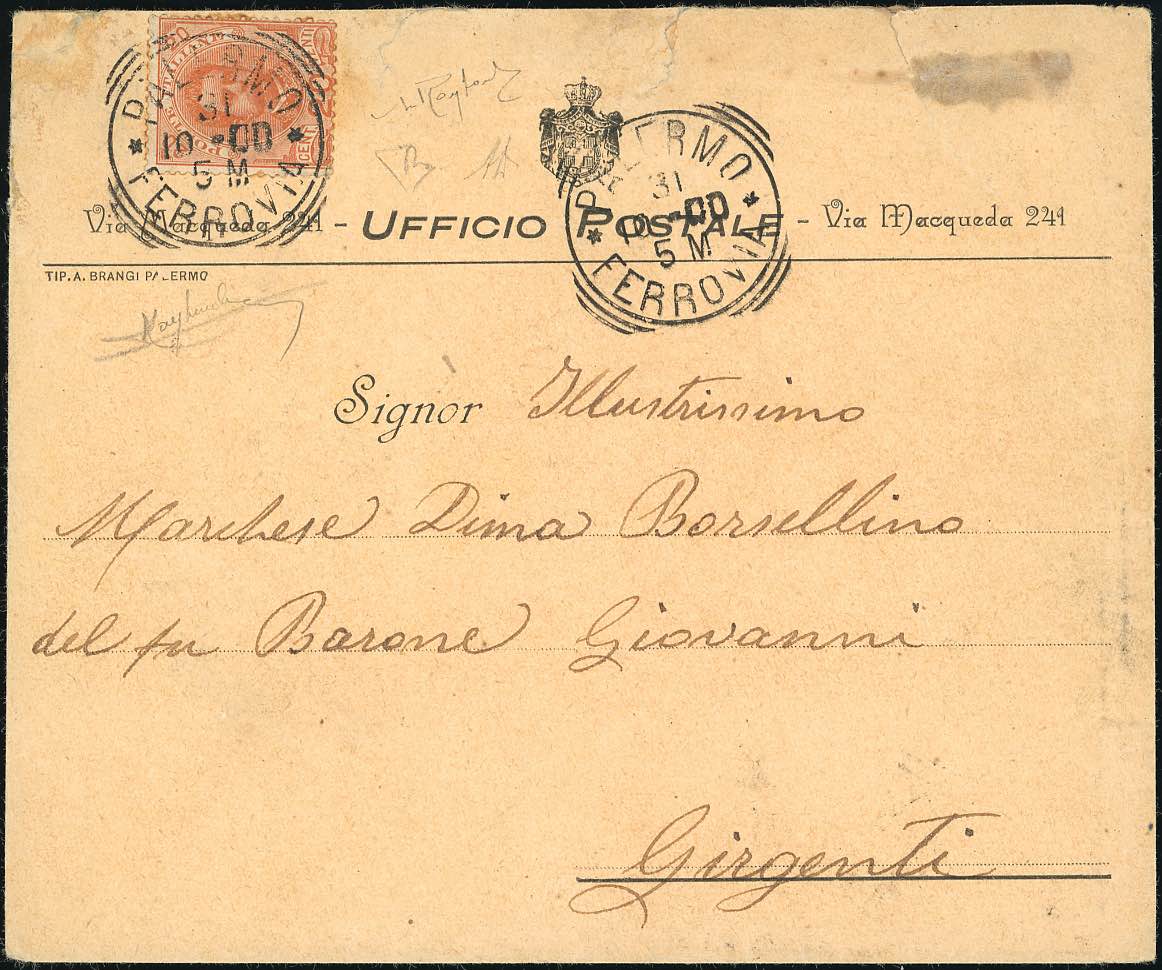 PALERMO
31
10 -00
5 M
* FERROVIA *
PALERMO
31
10 -00
5 M
* FERROVIA *
Via Macqueda 241 - UFFICIO POSTALE - Via Macqueda 241
TIP. A. BRANGI PALERMO
Signor Illustrissimo
Marchese Dima Borsellino
del fu Barone Giovanni
Girgenti